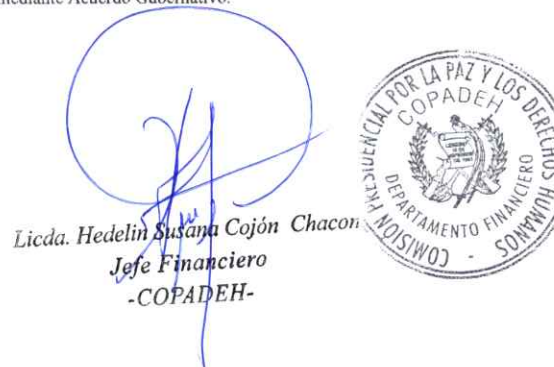 mediante Acuerdo Gubernativo.
Licda. Hedelin Susana Cojón Chacon
Jefe Financiero
-COPADEH-
COMISIÓN PRESIDENCIAL POR LA PAZ Y LOS DERECHOS HUMANOS -
COPADEH
DEPARTAMENTO FINANCIERO